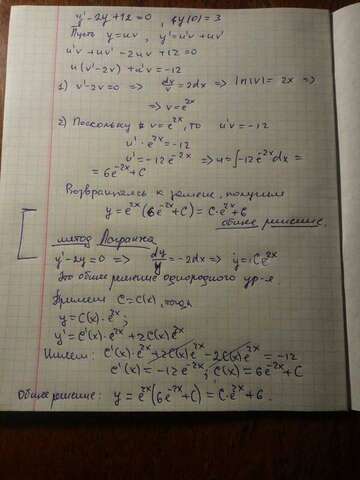 y' - 2y + 12 = 0, y(0) = 3
Пусть y = uv, y' = u'v + uv'
u'v + uv' - 2uv + 12 = 0
u(v' - 2v) + u'v = -12
1) v' - 2v = 0 => dv/v = 2dx => ln|v| = 2x =>
=> v = e^{2x}
2) Поскольку v = e^{2x}, то u'v = -12
u' · e^{2x} = -12
u' = -12e^{-2x} => u = ∫-12e^{-2x}dx =
= 6e^{-2x} + C
Возвращаясь к замене, получим
y = e^{2x}(6e^{-2x} + C) = C·e^{2x} + 6
общее решение
метод Лагранжа
y' - 2y = 0 => dy/y = -2dx => y = Ce^{2x}
Это общее решение однородного ур-я
Примем C = C(x), тогда
y = C(x)·e^{2x};
y' = C'(x)·e^{2x} + 2C(x)e^{2x}
Имеем: C'(x)·e^{2x} + 2C(x)e^{2x} - 2C(x)e^{2x} = -12
C'(x) = -12e^{-2x}; C(x) = 6e^{-2x} + C
Общее решение: y = e^{2x}(6e^{-2x} + C) = C·e^{2x} + 6.